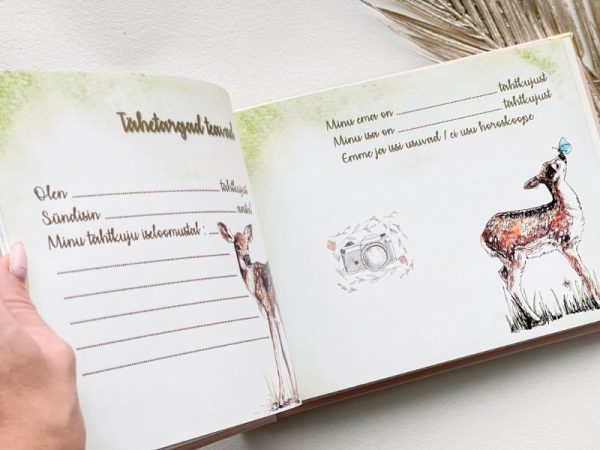 Tähetargad teavad
Olen ........ tähtkujust
Sündisin ........ aastal
Minu tähtkuju iseloomustab:
Minu ema on ........ tähtkujust
Minu isa on ........ tähtkujust
Emme ja issi usuvad / ei usu horoskoope